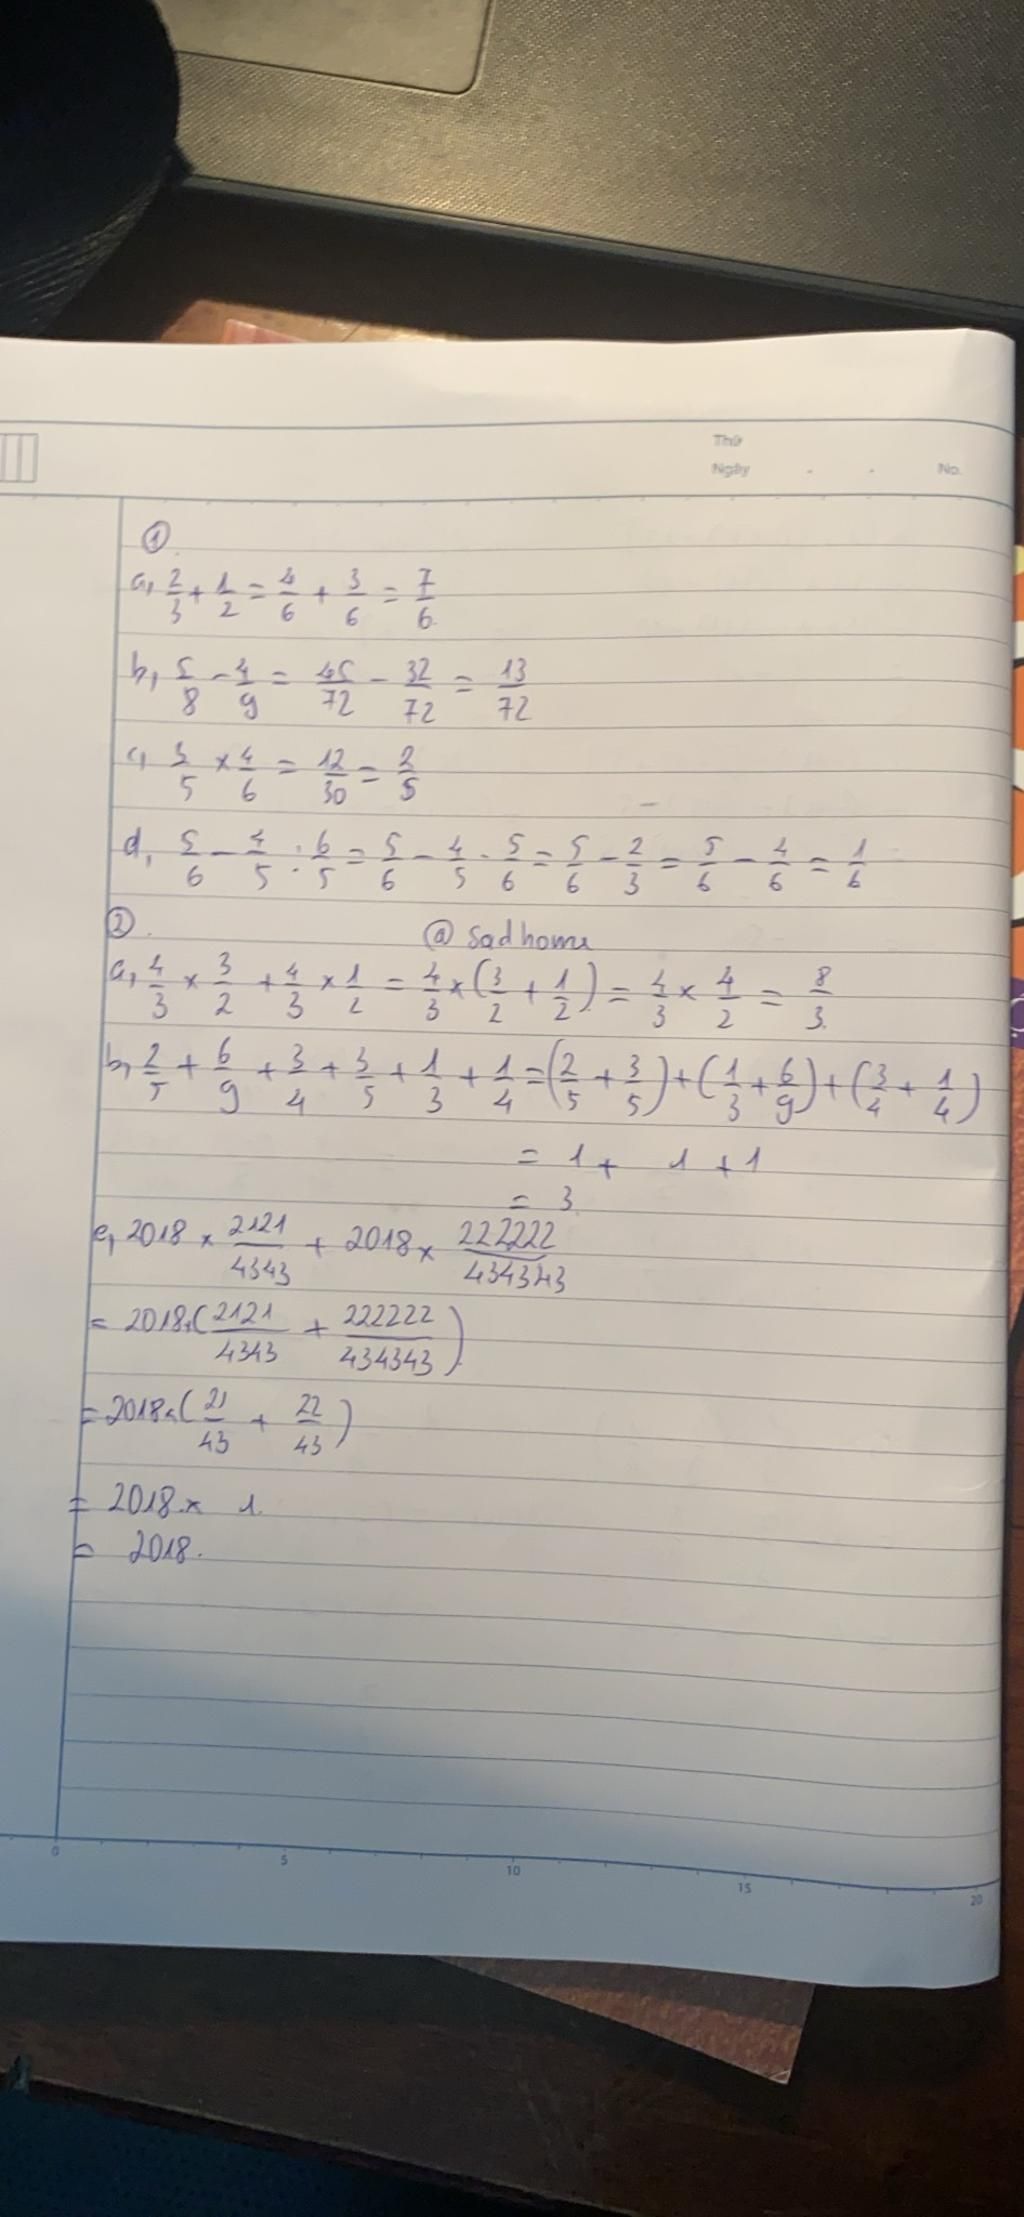 Thứ
Ngày . . No.
①
a, 2/3 + 1/2 = 4/6 + 3/6 = 7/6.
b, 5/8 - 4/9 = 45/72 - 32/72 = 13/72
c, 3/5 × 4/6 = 12/30 = 2/5
d, 5/6 - 4/5 : 6/5 = 5/6 - 4/5 . 5/6 = 5/6 - 2/3 = 5/6 - 4/6 = 1/6
②. @ Sadhomu
a, 4/3 × 3/2 + 4/3 × 1/2 = 4/3 × (3/2 + 1/2) = 4/3 × 4/2 = 8/3.
b, 2/5 + 6/9 + 3/4 + 3/5 + 1/3 + 1/4 = (2/5 + 3/5) + (1/3 + 6/9) + (3/4 + 1/4)
= 1 + 1 + 1
= 3.
e, 2018 × 2121/4343 + 2018 × 222222/434343
= 2018 × (2121/4343 + 222222/434343)
= 2018 × (21/43 + 22/43)
= 2018 × 1.
= 2018.
0 5 10 15 20